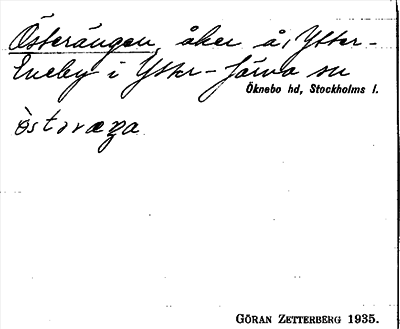 Österängen, åker å, Ytter-
Eneby i Ytter-Järna sn
Öknebo hd, Stockholms l.
GÖRAN ZETTERBERG 1935.